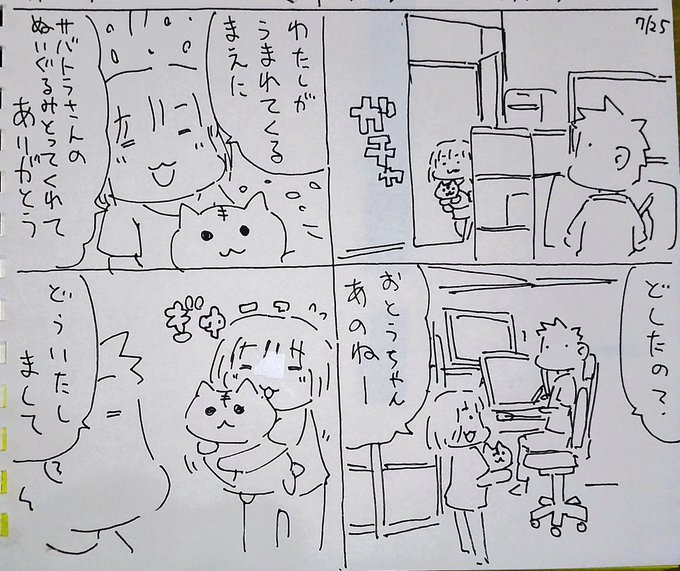 7/25
ガチャ
どしたの?
おとうちゃん
あのねー
わたしが
うまれてくる
まえに
サバトラさんの
ぬいぐるみとってくれて
ありがとう
どういたし
まして